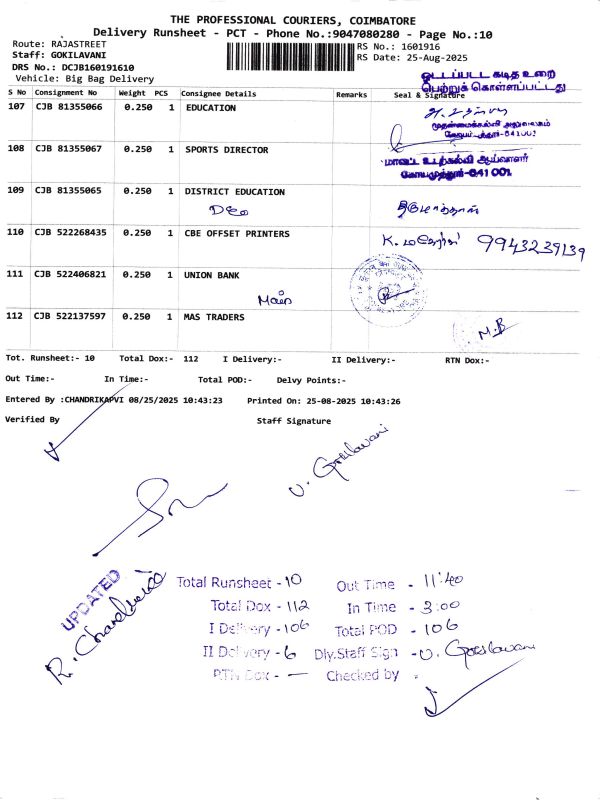 THE PROFESSIONAL COURIERS, COIMBATORE
Delivery Runsheet - PCT - Phone No.:9047080280 - Page No.:10
Route: RAJASTREET
RS No.: 1601916
Staff: GOKILAVANI
RS Date: 25-Aug-2025
DRS No.: DCJB160191610
Vehicle: Big Bag Delivery
ஒட்டப்பட்ட கடித உறை
பெற்றுக் கொள்ளப்பட்டது
S No Consignment No Weight PCS Consignee Details Remarks Seal & Signature
107 CJB 81355066 0.250 1 EDUCATION
முதன்மைக்கல்வி அலுவலகம்
கோயம்புத்தூர்-641001
108 CJB 81355067 0.250 1 SPORTS DIRECTOR
மாவட்ட உடற்கல்வி ஆய்வாளர்
கோயமுத்தூர்-641 001
109 CJB 81355065 0.250 1 DISTRICT EDUCATION
DEO
110 CJB 522268435 0.250 1 CBE OFFSET PRINTERS
K. 9943239139
111 CJB 522406821 0.250 1 UNION BANK
Main
112 CJB 522137597 0.250 1 MAS TRADERS
M.B
Tot. Runsheet:- 10 Total Dox:- 112 I Delivery:- II Delivery:- RTN Dox:-
Out Time:- In Time:- Total POD:- Delvy Points:-
Entered By :CHANDRIKAPVI 08/25/2025 10:43:23 Printed On: 25-08-2025 10:43:26
Verified By Staff Signature
U. Gokilavani
UPDATED
Total Runsheet - 10 Out Time - 11:40
Total Dox - 112 In Time - 3:00
I Delivery - 106 Total POD - 106
II Delivery - 6 Dly.Staff Sign - U. Gokilavani
RTN Dox - — Checked by -